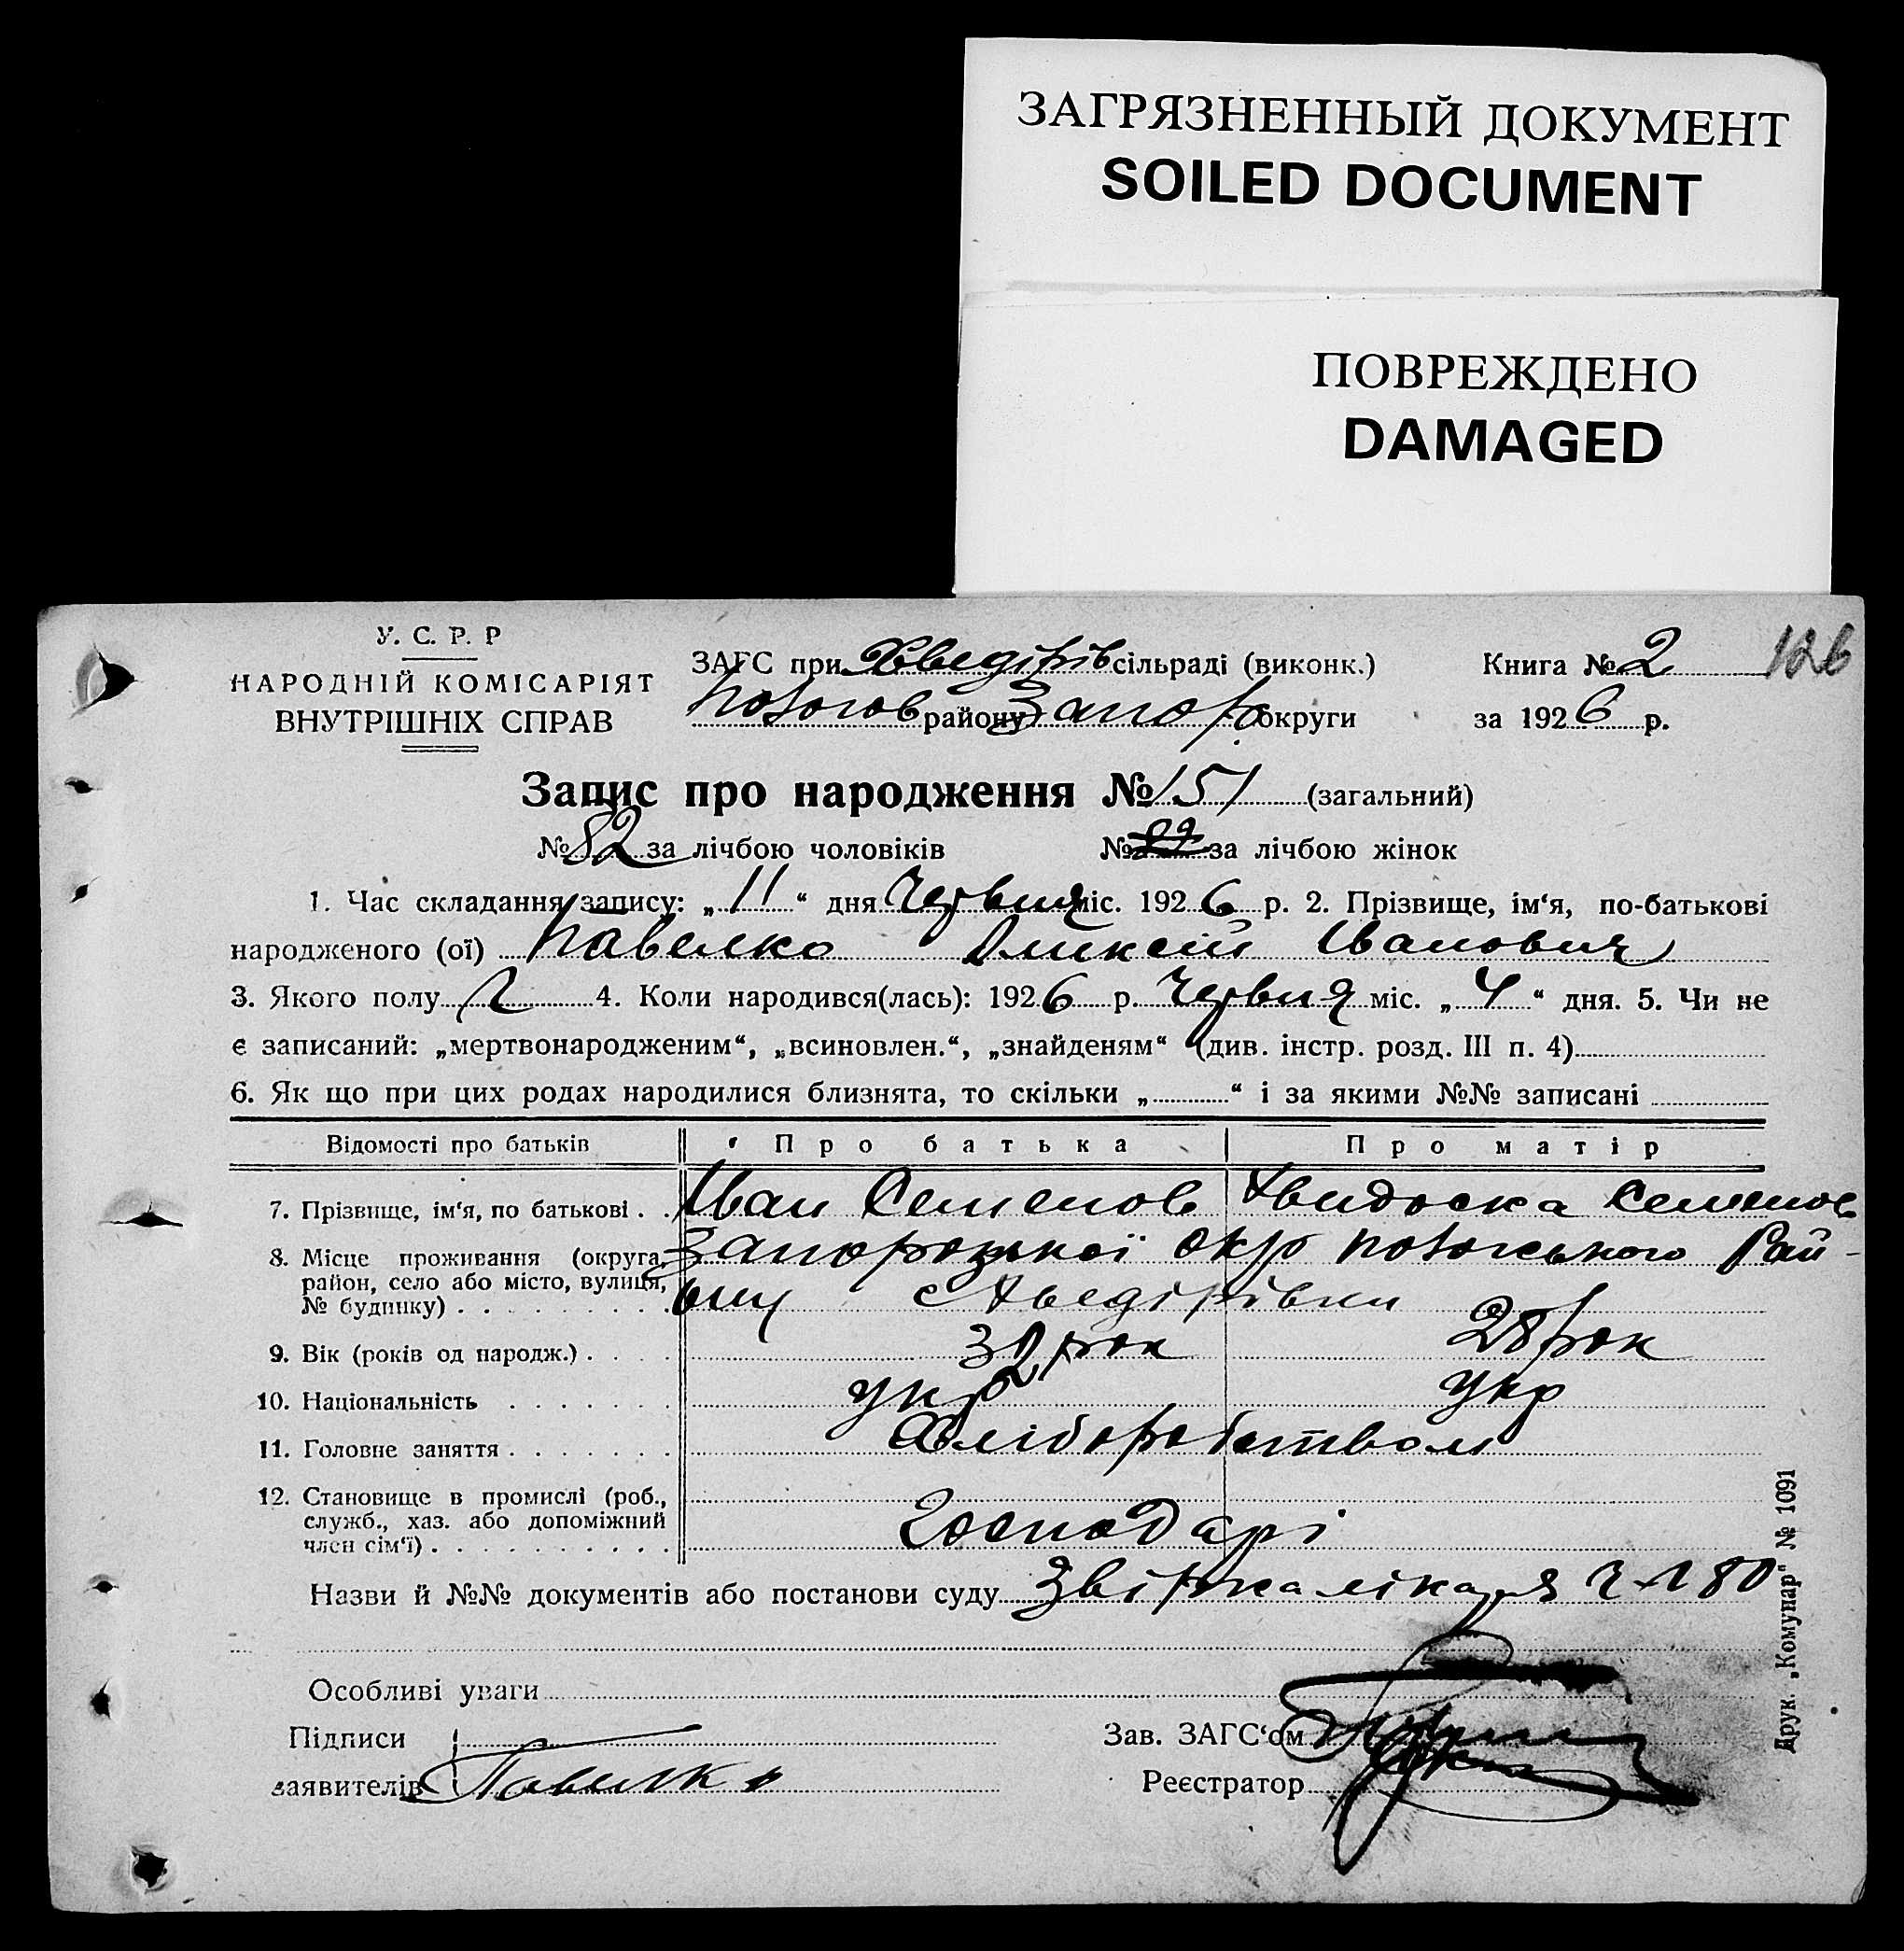 ЗАГРЯЗНЕННЫЙ ДОКУМЕНТ
SOILED DOCUMENT
ПОВРЕЖДЕНО
DAMAGED
126
У. С. Р. Р
НАРОДНІЙ КОМІСАРІЯТ
ВНУТРІШНІХ СПРАВ
ЗАГС при Хведірів сільраді (виконк.) Книга № 2
Пологов району Запор округи за 1926 р.
Запис про народження № 151 (загальний)
№ 82 за лічбою чоловіків № за лічбою жінок
1. Час складання запису: „11“ дня Червня міс. 1926 р. 2. Прізвище, ім‘я, по-батькові
народженого (ої) Павелко Оликсій Іванович
3. Якого полу 4. Коли народився(лась): 1926 р. Червня міс. „4“ дня. 5. Чи не
є записаний: „мертвонародженим“, „всиновлен.“, „знайденям“ (див. інстр. розд. III п. 4)
6. Як що при цих родах народилися близнята, то скільки „ “ і за якими №№ записані
Відомості про батьків Про батька Про матір
7. Прізвище, ім‘я, по батькові Іван Семенов Хвидоска Семенов
8. Місце проживання (округа, район, село або місто, вулиця, № будинку) Запорозької окр Пологського Рай-
ону с Хведірівки
9. Вік (років од народж.) 32 рок 28 рок
10. Національність укр укр
11. Головне заняття Хліборобством
12. Становище в промислі (роб.,
служб., хаз. або допоміжний
член сім‘ї) Господарі
Назви й №№ документів або постанови суду Звірка лікаря 180
Особливі уваги
Підписи Зав. ЗАГС‘ом
заявителів Павилко Реєстратор
Друк. „Комунар“ № 1091